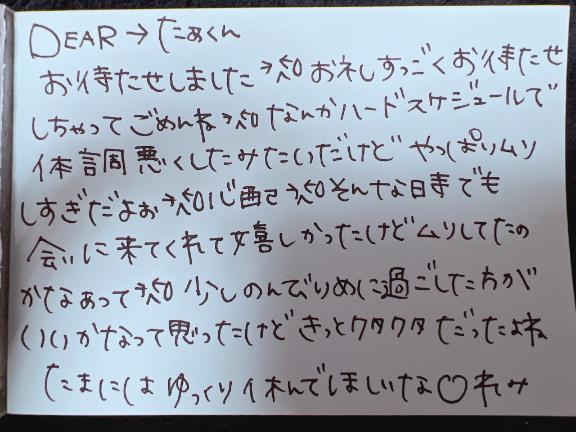 DEAR→たぁくん
お待たせしました お礼すっごくお待たせ
しちゃってごめんね なんかハードスケジュールで
体調悪くしたみたいだけど やっぱりムリ
しすぎだよぉ 心配 そんな日事でも
会いに来てくれて嬉しかったけどムリしてたの
かなぁって 少しのんびりめに過ごした方が
いいかなって思ったけどきっとクタクタだったよね
たまにはゆっくり休んでほしいな♡れみ